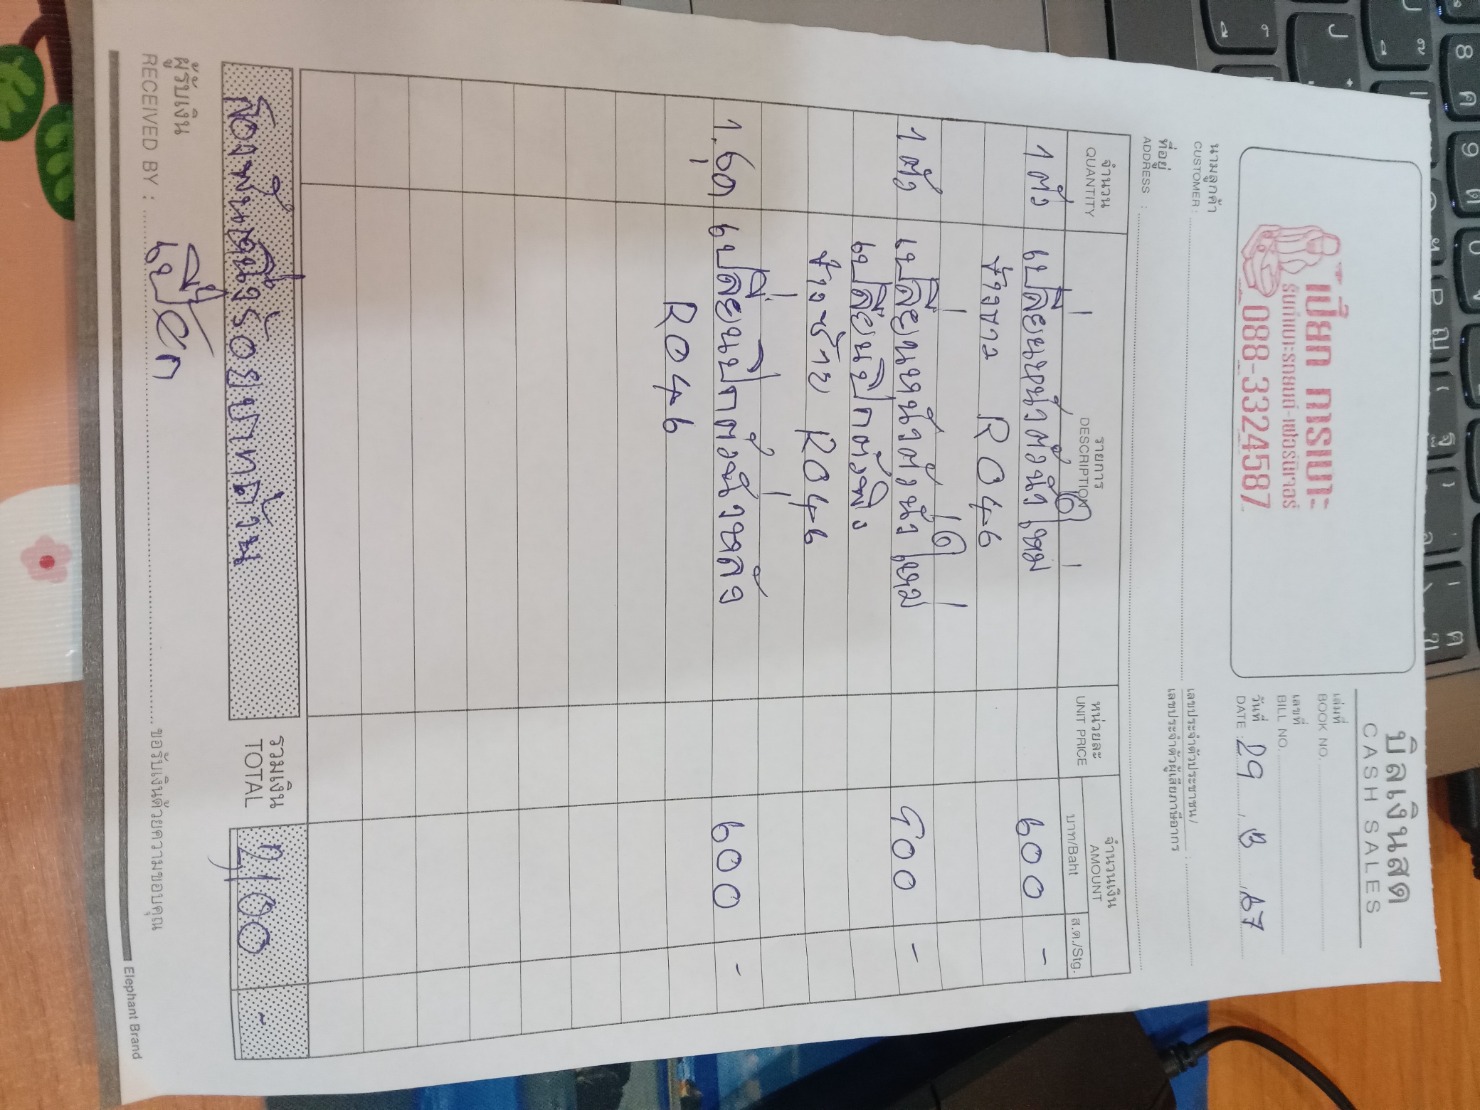 บิลเงินสด
CASH SALES
เปี๊ยก การเบาะ
รับทำเบาะรถยนต์-เฟอร์นิเจอร์
088-3324587
เล่มที่
BOOK NO.
เลขที่
BILL NO.
วันที่
DATE : 29 . 8 . 67
นามลูกค้า
CUSTOMER :
เลขประจำตัวประชาชน/
เลขประจำตัวผู้เสียภาษีอากร :
ที่อยู่
ADDRESS :
จำนวน
QUANTITY
รายการ
DESCRIPTION
หน่วยละ
UNIT PRICE
จำนวนเงิน
AMOUNT
บาท/Baht
ส.ต./Stg.
1 ตัว เปลี่ยนหน้าตัวนั่งใหม่ 600 -
ข้างขวา R046
1 ตัว เปลี่ยนหน้าตัวนั่งใหม่ 900 -
เปลี่ยนปีกตัวพิง
ข้างซ้าย R046
เปลี่ยนปีกตัวนั่งหลัง 600 -
R046
สองพันหนึ่งร้อยบาทถ้วน
รวมเงิน
TOTAL
2,100 -
ผู้รับเงิน
RECEIVED BY : เปี๊ยก
ขอรับเงินด้วยความขอบคุณ
Elephant Brand